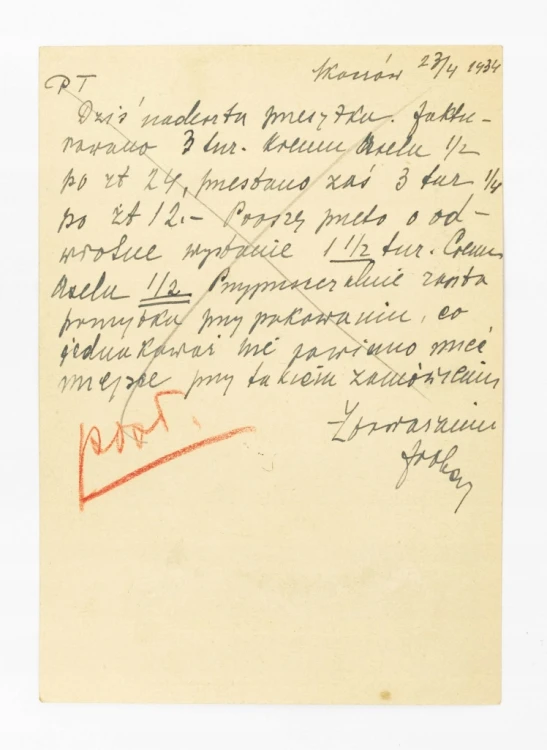 PT
23/4 1934
Dziś nadeszła przesyłka. faktu-
rowano 3 tuz. Kremu Axela 1/2
po zł 24, przesłano zaś 3 tuz 1/4
po zł 12.- Proszę przeto o od-
wrotne wysłanie 1 1/2 tuz. Cremu
Axela 1/2 Przypuszczalnie zaszła
pomyłka przy pakowaniu, co
jednakowoż nie powinno mieć
miejsce przy takiem zamówieniu
Z poważaniem